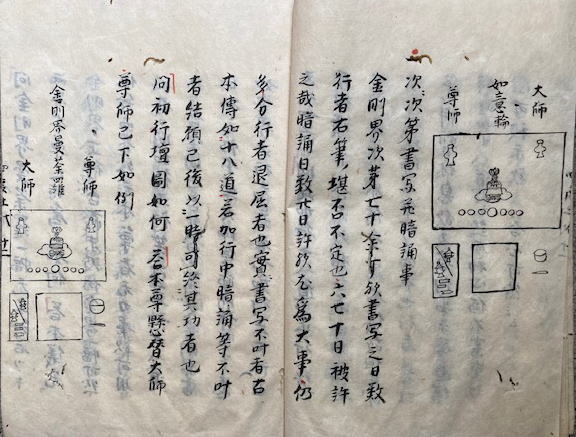 大師
如意輪
尊師
次次第書写并暗誦事
金剛界次第七十余丁欤書写之日数
行者右筆堪否不定也六七十日被許
之哉暗誦日数廿日許欤尤為大事仍
多分行者退屈者也實書写不叶者古
本傳如十八道若加行中暗誦等不叶
者結願已後以一時可終其功者也
問初行壇圖如何 答本尊懸替大師
尊師已下如例
尊師
金剛界曼荼羅
大師